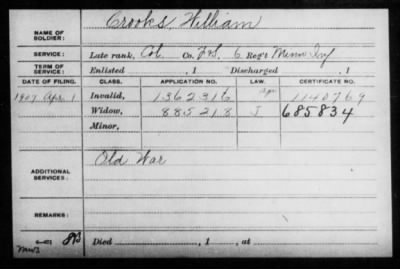 NAME OF SOLDIER: Crooks, William
SERVICE: Late rank, Col. Co. F&S, 6 Reg't Minn Inf
TERM OF SERVICE: Enlisted , 1 Discharged , 1
DATE OF FILING. CLASS. APPLICATION NO. LAW. CERTIFICATE NO.
1907 Apr. 1 Invalid, 1362316 1140769
Widow, 885218 J 685834
Minor,
ADDITIONAL SERVICES: Old War
REMARKS:
Died , 1 , at